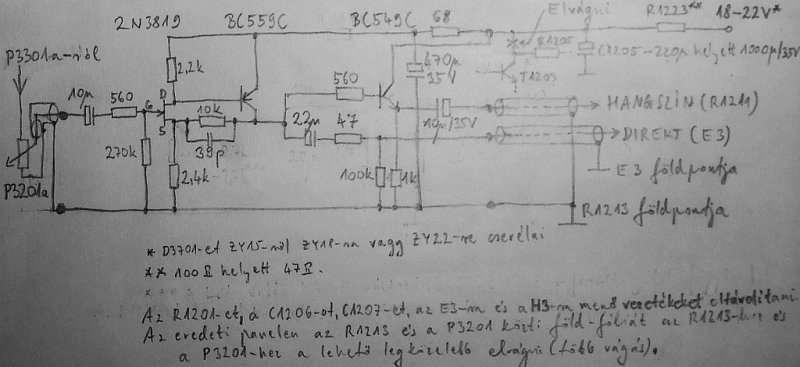 2N3819 BC559C BC549C 68 Elvágni R1223** 18-22V*
P3301a-ról
R1205 C1205-220µ helyett 1000µ/35V
2,2k 470µ 35V
T1203
10µ 560 D G S 560
10k 22µ 47 10µ/35V HANGSZÍN (R1211)
39p DIREKT (E3)
270k
P3201a 2,4k 100k 1k E3 földpontja
R1213 földpontja
* D3701-et ZY15-ről ZY18-ra vagy ZY22-re cserélni
** 100Ω helyett 47Ω.
Az R1201-et, a C1206-ot, C1207-et, az E3-ra és a H3-ra menő vezetékeket eltávolítani.
Az eredeti panelen az R1213 és a P3201 közti föld-fóliát az R1213-hez és
a P3201-hez a lehető legközelebb elvágni (több vágás).